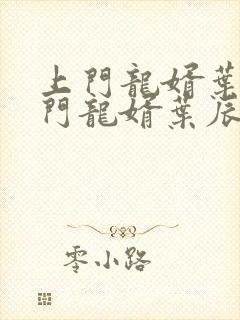 上門龍婿葉
門龍婿葉辰
零小路